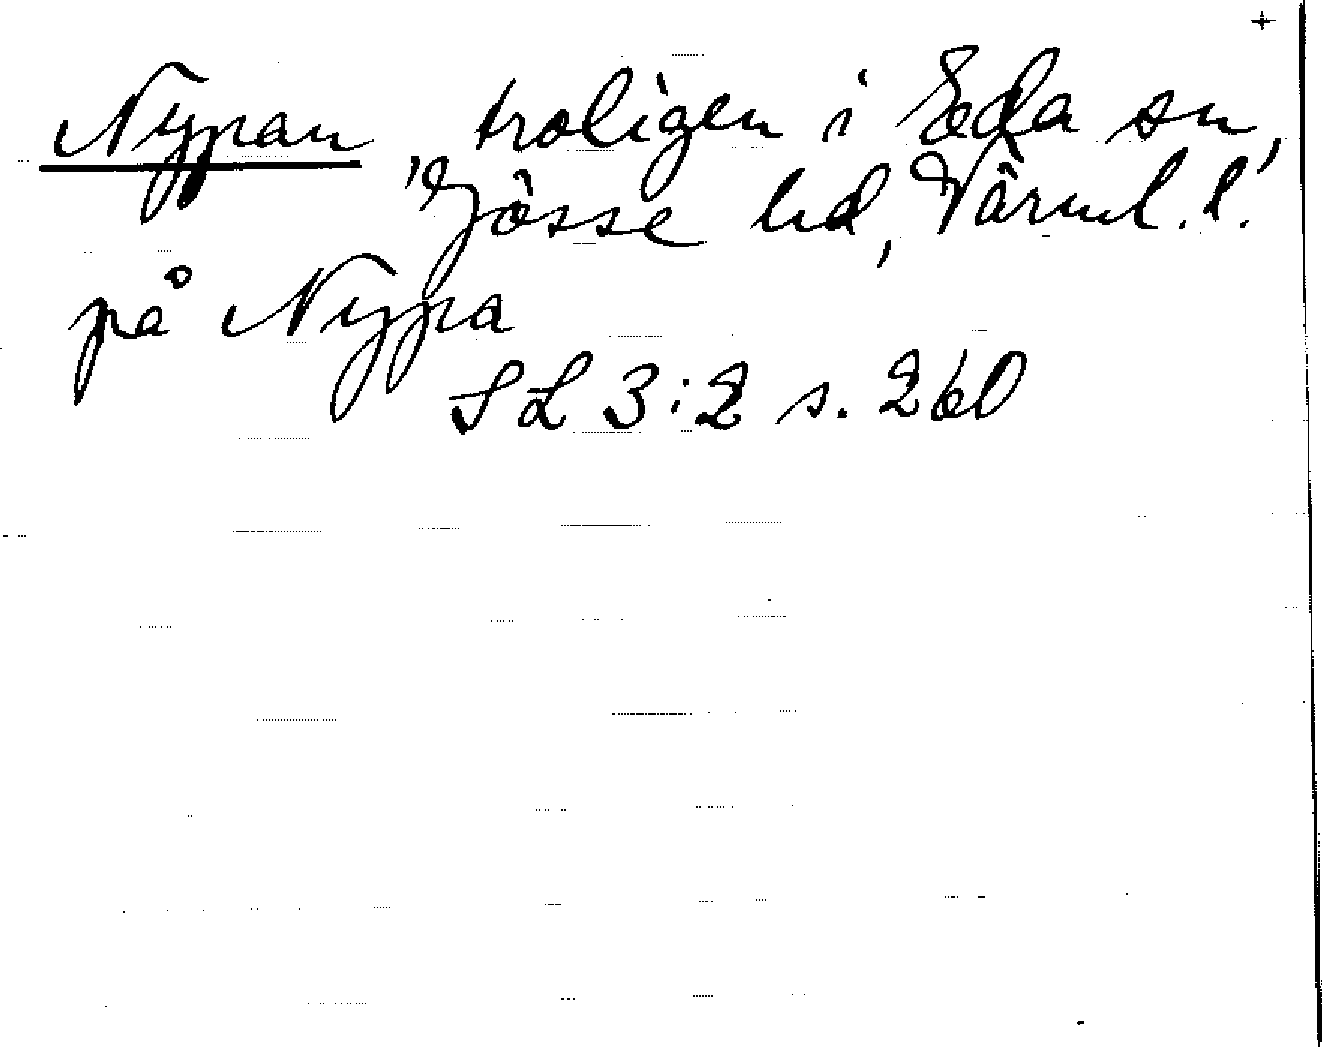 +
Nypan, troligen i Eda sn,
Jösse hd, Värml. l.
på Nypa
SL 3:2 s. 260